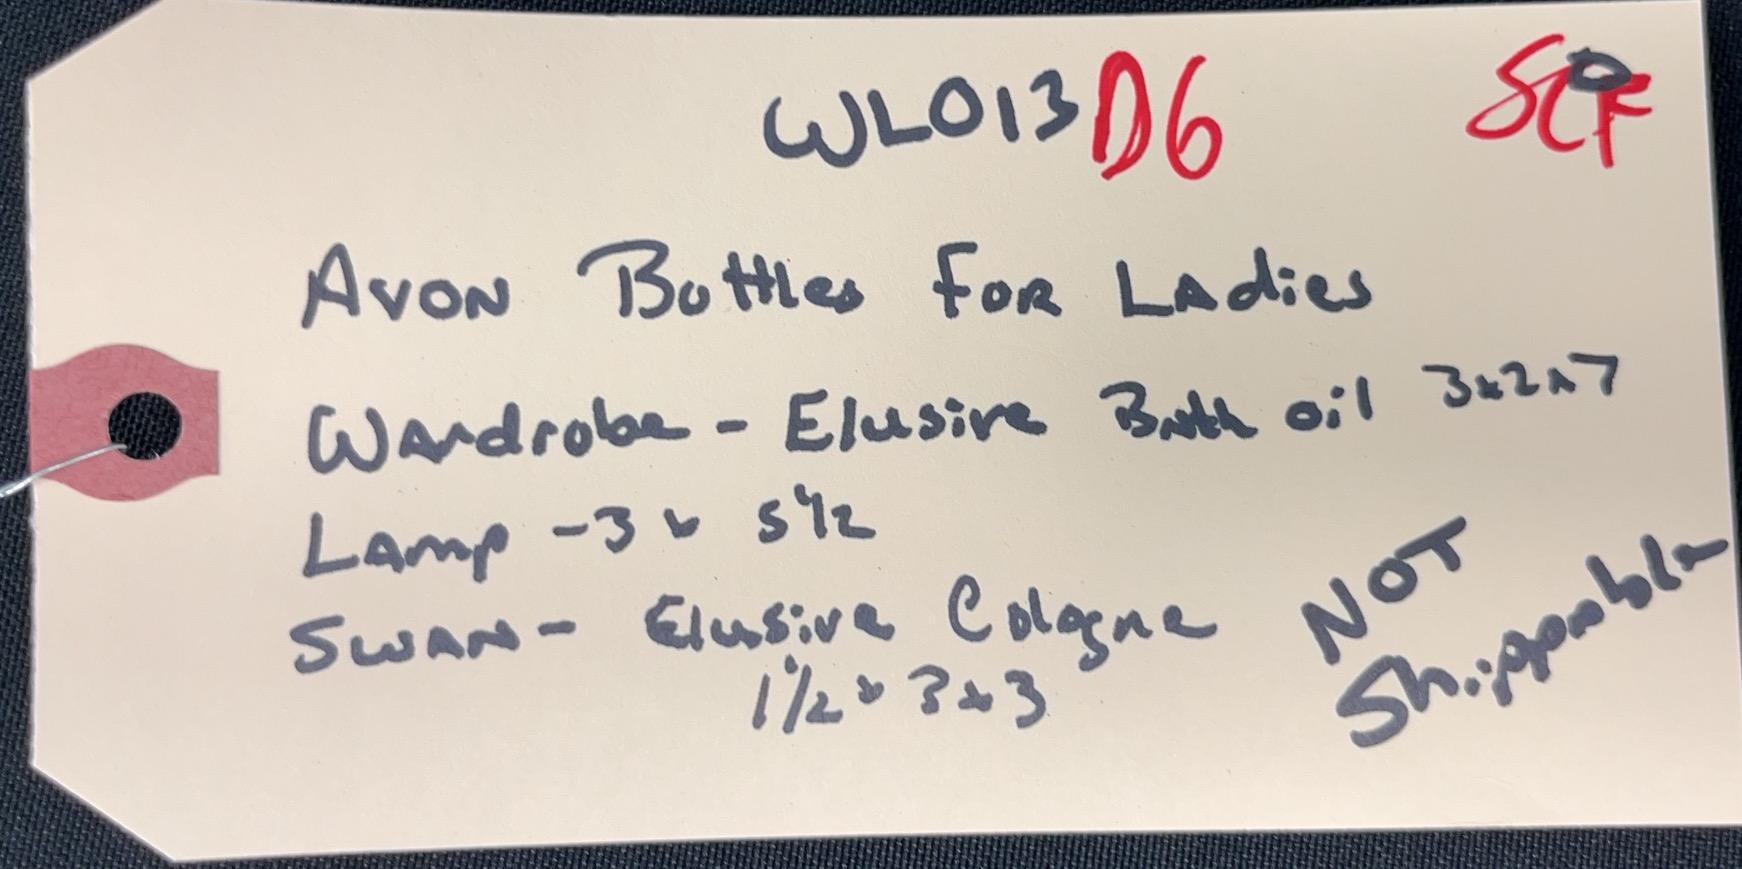 WL013 D6 SCF
Avon Bottles For Ladies
Wardrobe - Elusive Bath oil 3x2x7
Lamp - 3 x 5 1/2
Swan - Elusive Cologne
1 1/2 x 3 x 3
NOT
Shippable